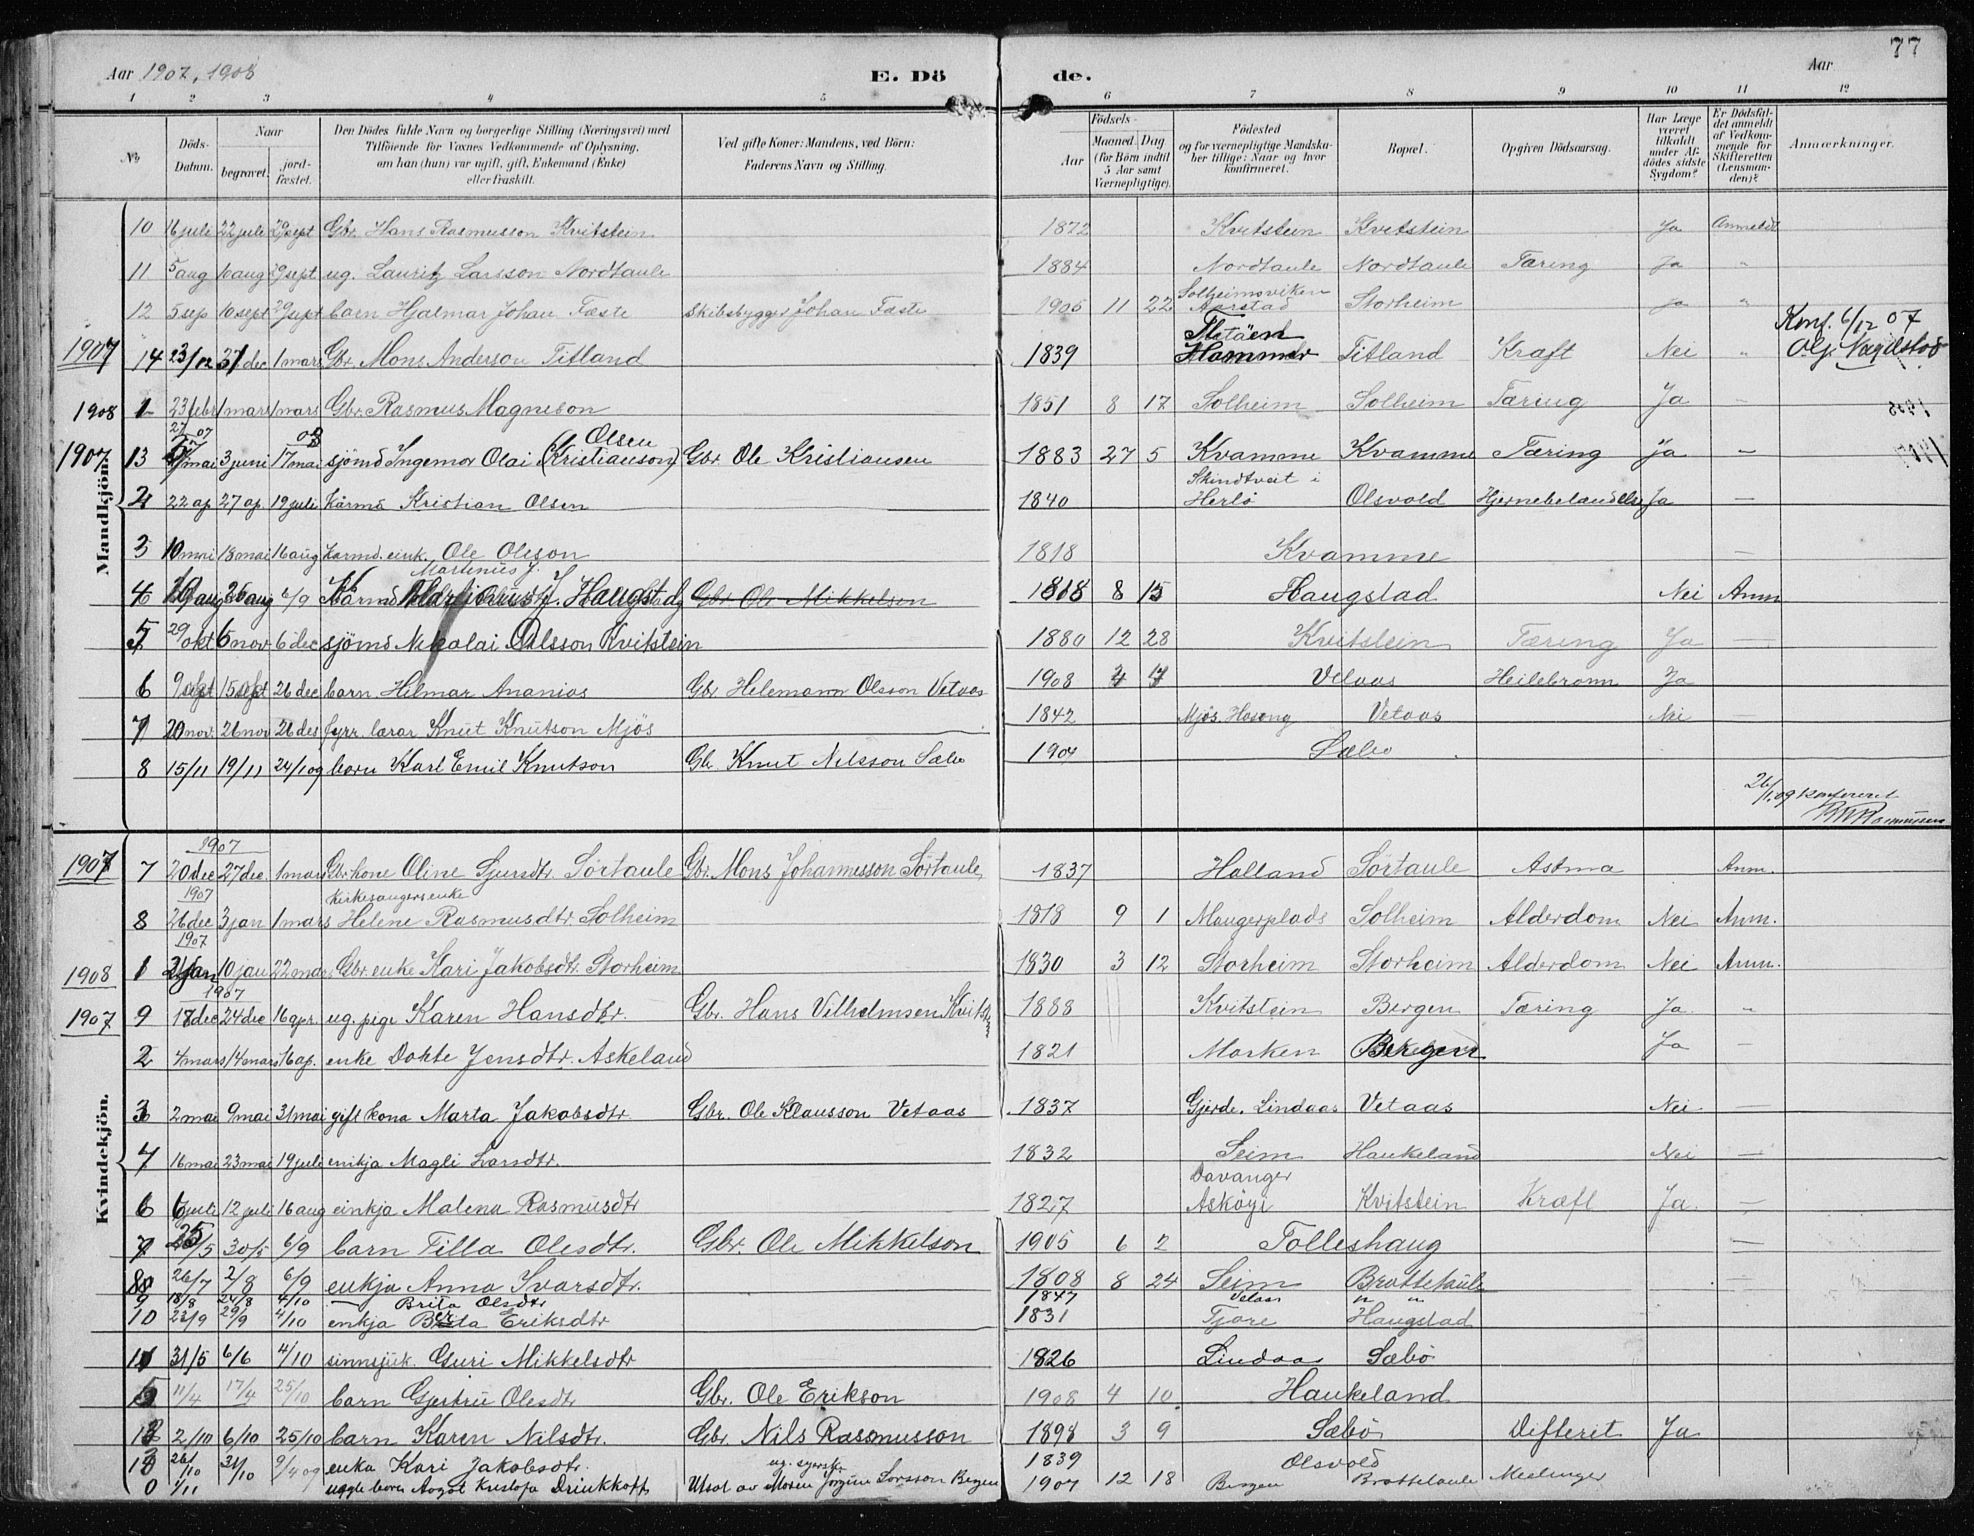 77
Aar 1907, 1908 E. Dö de. Aar
1 2 3 4 5 6 7 8 9 10 11 12
No Döds-Datum. Naar begravet. jord-fæstet. Den Dödes fulde Navn og borgerlige Stilling (Næringsvei) med Tilföiende for Voxnes Vedkommende af Oplysning, om han (hun) var ugift, gift, Enkemand (Enke) eller fraskilt. Ved gifte Koner: Mandens, ved Börn: Faderens Navn og Stilling. Födsels- Aar Maaned Dag (for Börn indtil 5 Aar samt Værnepligtige). Födested og for værnepligtige Mandska-ber tillige: Naar og hvor konfirmeret. Bopæl. Opgiven Dödsaarsag. Har Læge været tilkaldt under Af-dödes sidste Sygdom? Er Dödsfal-det anmeldt af Vedkom-mende for Skifteretten (Lensman-den)? Anmærkninger.
Mandkjön.
10 16 juli 22 juli 29 sept Gbr. Hans Rasmusson Kvitstein 1872 Kvitstein Kvitstein Ja Anmeldt
11 5 aug 10 aug 29 sept ug. Lauritz Larsson Nordtaule 1884 Nordtaule Nordtaule Tæring Ja "
12 5 sep 10 sept 29 sept barn Hjalmar Johan Fæste Skibsbygger Johan Fæste 1905 11 22 Solheimsviken Aarstad Storheim Ja "
1907 14 23/12 31 dec 1 mars Gbr. Mons Anderson Titland 1839 Hammer Titland Kraft Nei " Konf. 6/12 07
1908 1 23 febr 1 mars 1 mars Gbr. Rasmus Magneson 1851 8 17 Solheim Solheim Tæring Ja -
1907 13 27 mai 3 juni 17 mai 08 sjömd Ingemor Olai Olsen (Kristianson) Gbr. Ole Kristiansen 1883 27 5 Kvamme Kvamme Tæring Ja -
2 22 ap 27 ap 19 juli Kårmd Kristian Olsen 1840 Skindtveit i Herlö Olsvold Hjernebetændelse Ja -
3 10 mai 18 mai 16 aug Karmd. enk. Ole Oleson 1818 Kvamme -
4 19 aug 26 aug 6/9 Kårmd Martinus J. Haugstad Gbr Ole Mikkelsen 1818 8 15 Haugstad Nei Anm
5 29 okt 6 nov 6 dec sjömd Nikolai Olsson Kvitstein 1880 12 28 Kvitstein Tæring Ja -
6 9 sept 15 sept 26 dec barn Hilmar Ananias Gbr Helemann Olsson Vetaas 1908 4 7 Vetaas Heilebronn Ja
7 20 nov. 26 nov 26 des fyrr. lærar Knut Knutson Mjös 1842 Mjös. Hosong Vetaas Nei
8 15/11 19/11 24/1 09 born Karl Emil Knutson Gb. Knut Nilsson Sæbo 1904 Sæbo
26/1 09 konfereret
Rasmussen
Kvindekjön.
1907 7 20 dec 1907 27 dec. 1 mars Gbr kone Oline Sjursdtr Sörtaule Gbr. Mons Johannesson Sörtaule 1837 Holland Sörtaule Astma Anm.
8 26 dec 1907 3 jan 1 mars kirkesangers enke Helene Rasmusdtr Solheim 1818 9 1 Maugerplads Solheim Alderdom Nei Anm.
1908 1 jan 10 jan 22 mars Gbr enke Kari Jakobsdtr. Storheim 1830 3 12 Storheim Storheim Alderdom Nei Anm.
1907 9 18 dec 1907 24 dec 16 apr. ug. pige Karen Hansdtr. Gbr. Hans Vilhelmsen Kvitst. 1888 Kvitstein Bergen Tæring Ja. "
2 4 mars 14 mars 16 ap. enke Dorte Jensdtr. Askeland 1821 Marken Ja -
3 2 mai 9 mai 31 mai gift kona Marta Jakobsdtr Gbr. Ole Klausson Vetaas 1837 Gjerde. Lindaas Vetaas Nei -
4 16 mai 23 mai 19 juli enkja Magli Larsdtr. 1832 Seim Haukeland Nei -
6 6 juli 12 juli 16 aug einkja Malena Rasmusdtr 1827 Davanger Asköyi Kvitstein Kræft Ja. -
7 25/5 30/5 6/9 barn Tilla Olesdtr. Gbr. Ole Mikkelson 1905 6 2 Tolleshaug -
8 26/7 2/8 6/9 enkja Anna Ivarsdtr. 1808 8 24 Seim Brottetaule -
9 18/8 24/8 4/10 — Brita Olsdtr 1847 Vetaas " "
10 23/9 29/9 4/10 enkja Berta Eriksdtr 1831 Tjore Haugstad
11 31/5 6/6 4/10 sinnsjuk Guri Mikkelsdtr 1826 Lindaas Sæbö
5 11/4 17/4 25/10 barn Gjertrü Olesdtr Gbr. Ole Erikson 1908 4 10 Haukeland
12 2/10 6/10 25/10 barn Karen Nilsdtr. Gbr. Nils Rasmusson 1898 3 9 Sæbö Difterit Ja
13 26/10 31/10 9/4 09 enka Kari Jakobsdtr. 1839 Olsvold
0 1/11 Aagot Kristofa Drinkkopf Utsat av Jörgine Larsson Bergen 1907 12 18 Bergen Brottetaule Meslinger